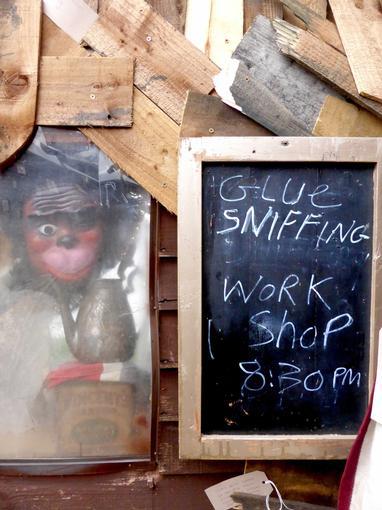 GLUE
SNIFFING
WORK
SHOP
8:30 PM